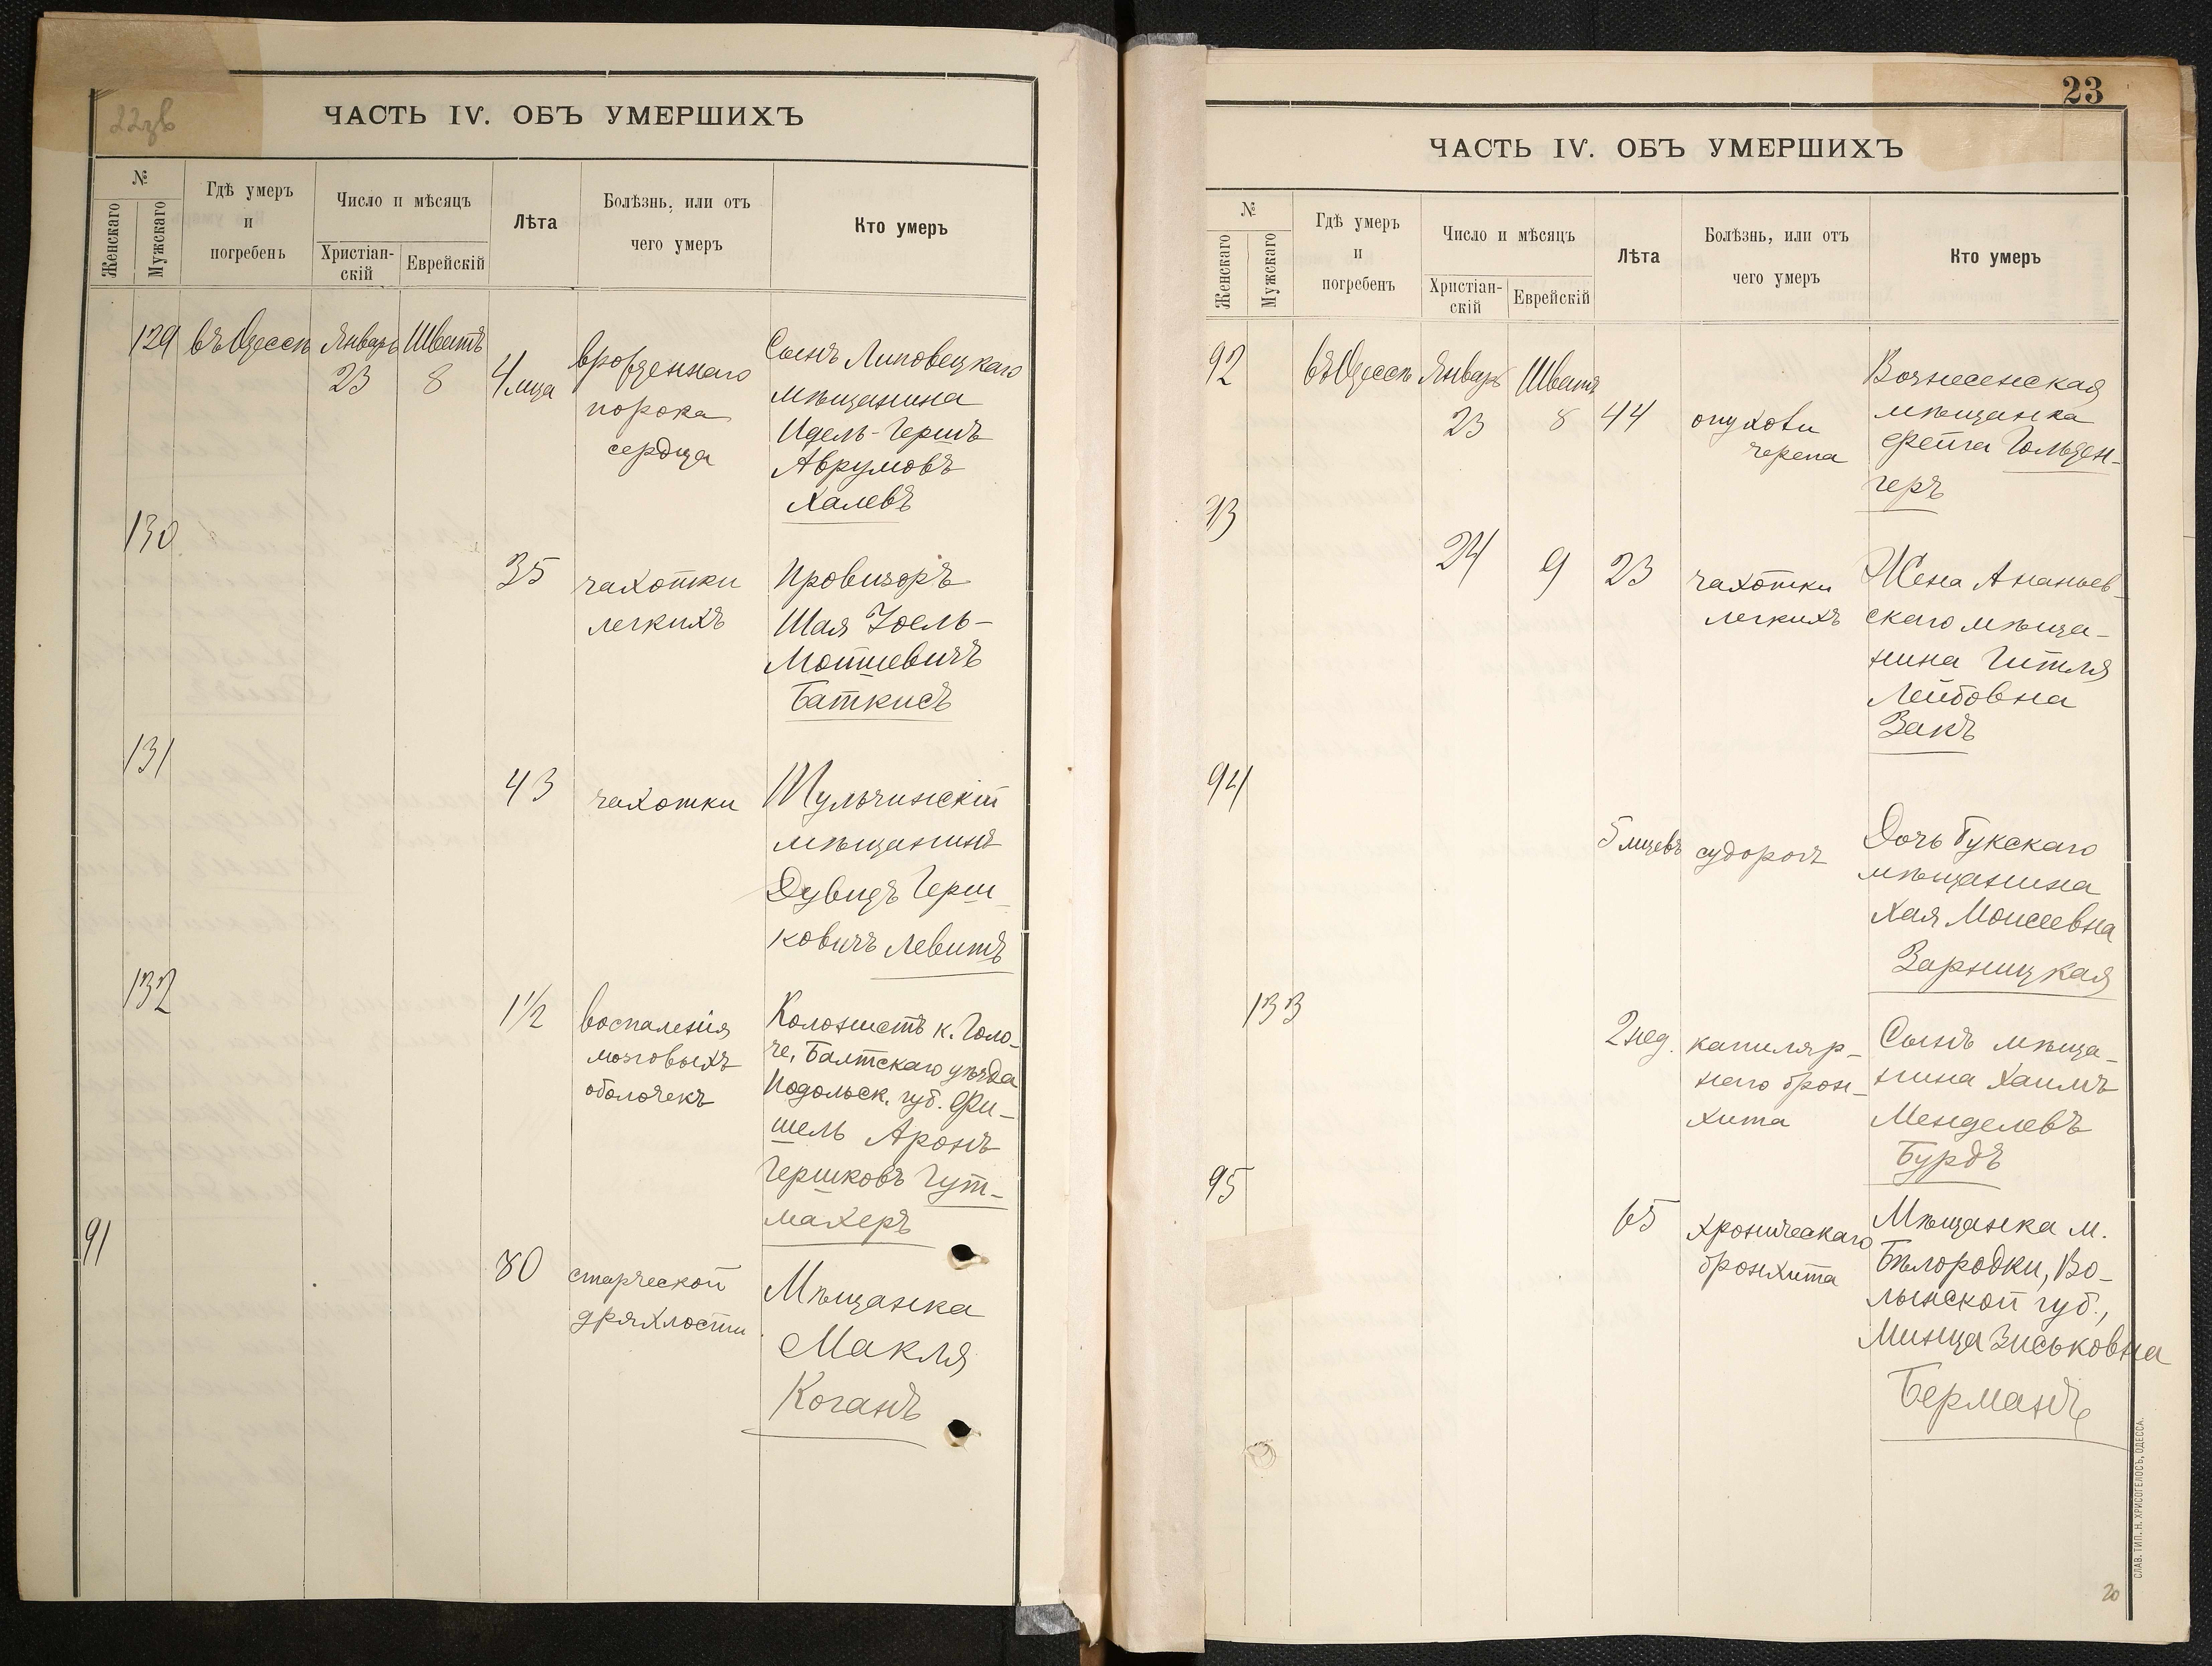 22зв
ЧАСТЬ IV. ОБЪ УМЕРШИХЪ
№
Женскаго
Мужскаго
Гдѣ умеръ
и
погребенъ
Число и мѣсяцъ
Христіан-
скій
Еврейскій
Лѣта
Болѣзнь, или отъ
чего умеръ
Кто умеръ
129
въ Одессѣ
Январь
23
Шватъ
8
4 мца
врожденнаго
порока
сердца
Сынъ Липовецкаго
мѣщанина
Идель-Гершъ
Аврумовъ
Халевъ
130
35
чахотки
легкихъ
Провизоръ
Шая Іоель-
Мошкевичъ
Баткисъ
131
43
чахотки
Тульчинскій
мѣщанинъ
Дувидъ Герш-
ковичъ Левитъ
132
1 1/2
воспаленія
мозговыхъ
оболочекъ
Колонистъ к. Голо-
че, Балтскаго уѣзда
Подольск. губ. Фи-
шель Аронъ
Гершковъ Гут-
махеръ
91
80
старческой
дряхлости
Мѣщанка
Макля
Коганъ
23
ЧАСТЬ IV. ОБЪ УМЕРШИХЪ
№
Женскаго
Мужскаго
Гдѣ умеръ
и
погребенъ
Число и мѣсяцъ
Христіан-
скій
Еврейскій
Лѣта
Болѣзнь, или отъ
чего умеръ
Кто умеръ
92
въ Одессѣ
Январь
23
Шватъ
8
44
опухоли
черепа
Вознесенская
мѣщанка
Фейга Гольден-
геръ
93
24
9
23
чахотки
легкихъ
Жена Ананьев-
скаго мѣща-
нина Гитля
Лейбовна
Закъ
94
5 мцевъ
судорогъ
Дочь Букскаго
мѣщанина
Хая Моисеевна
Зарницкая
133
2 нед.
капиляр-
наго брон-
хита
Сынъ мѣща-
нина Хаимъ
Менделевъ
Бурдъ
95
65
хроническаго
бронхита
Мѣщанка м.
Бѣлородки, Во-
лынской губ.,
Минца Зиськовна
Берманъ
СЛАВ. ТИП. Н. ХРИСОГЕЛОСЪ, ОДЕССА.
20